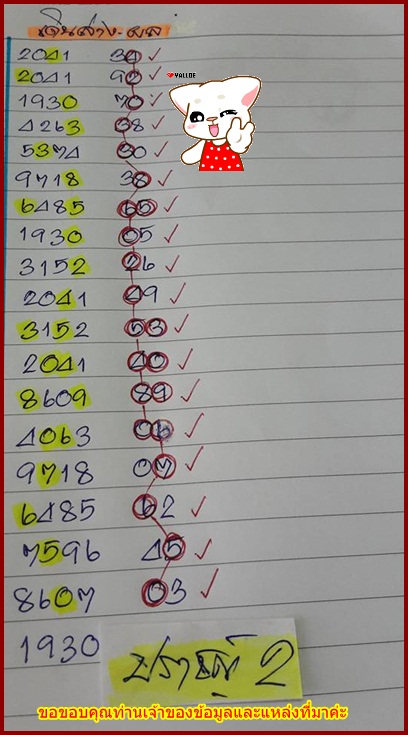 เดินสาง-ผล
2041 34 ✓
2041 92 ✓
♥YALLOE
1930 70 ✓
4263 08 ✓
5374 30 ✓
9718 38 ✓
6485 65 ✓
1930 05 ✓
3152 26 ✓
2041 49 ✓
3152 53 ✓
2041 40 ✓
8609 89 ✓
4063 06 ✓
9718 07 ✓
6485 62 ✓
7596 45 ✓
8607 03 ✓
1930
2
ขอขอบคุณท่านเจ้าของข้อมูลและแหล่งที่มาค่ะ